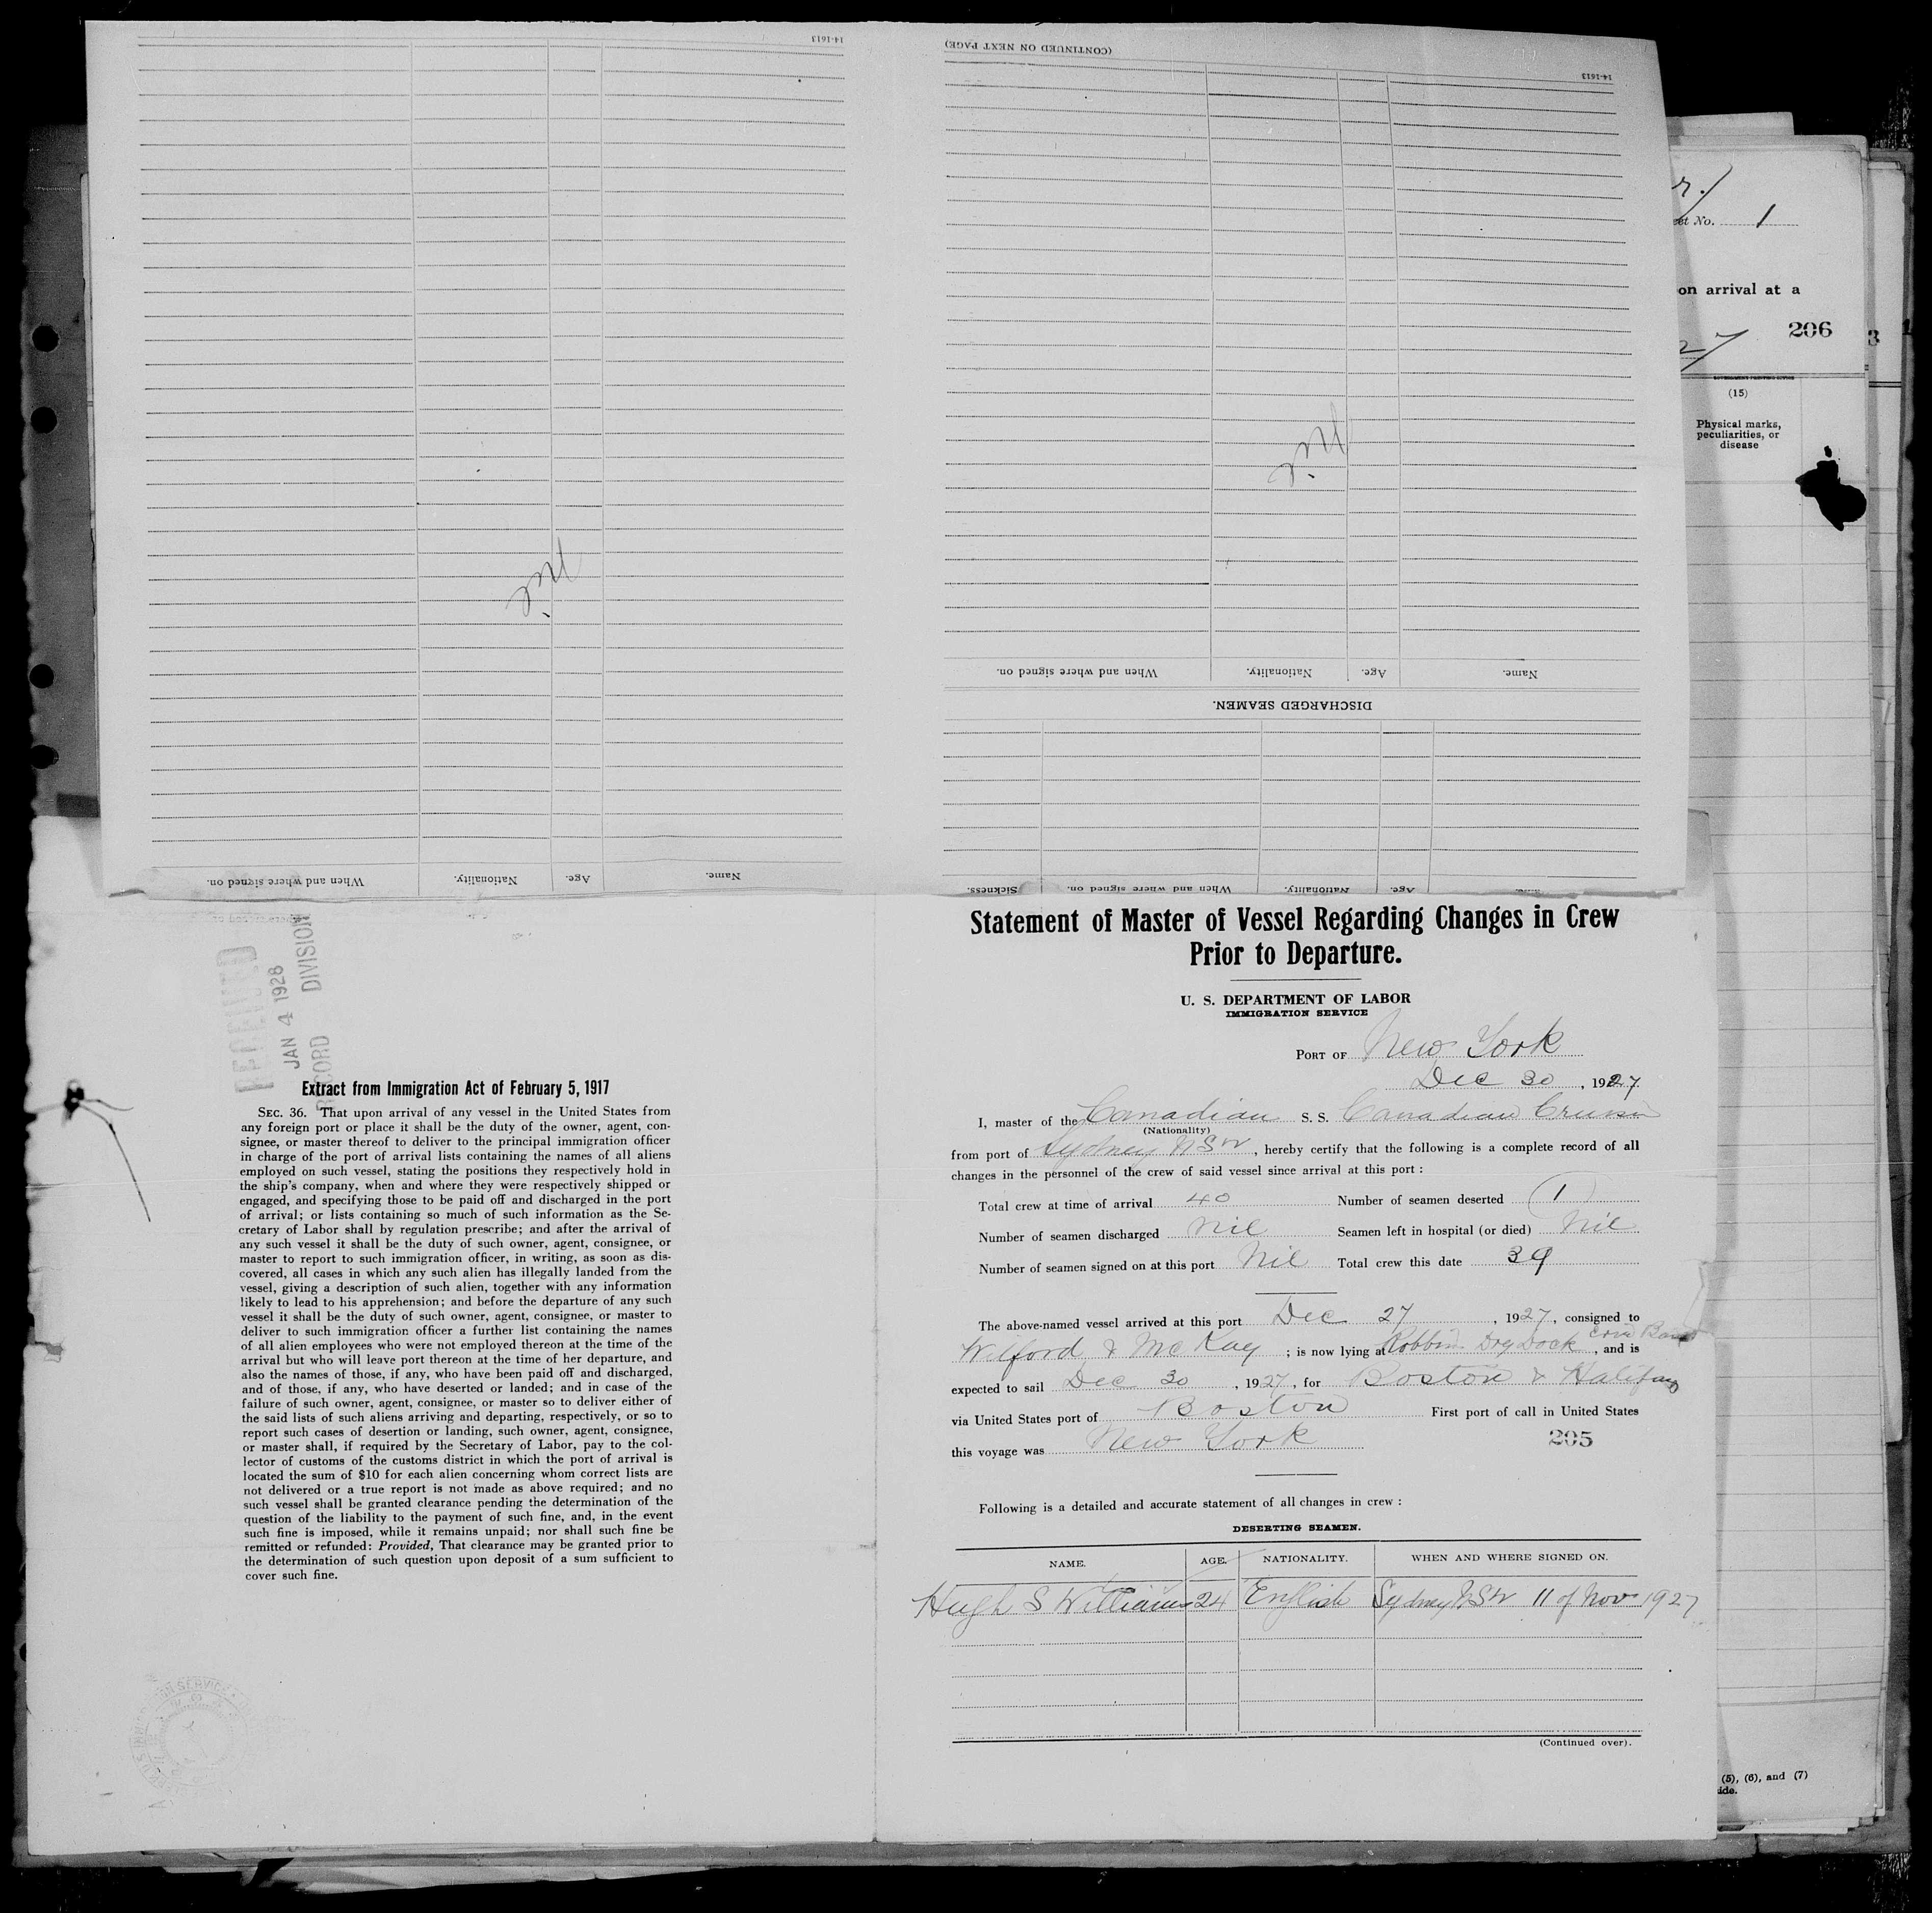 14-1613
(CONTINUED ON NEXT PAGE)
14-1613
Nil
Nil
When and where signed on.
Nationality.
Age.
Name.
DISCHARGED SEAMEN.
Sickness.
When and where signed on.
Nationality.
Age.
When and where signed on.
Nationality.
Age.
Name.
Sheet No. 1
on arrival at a
27
206
3
(15)
Physical marks,
peculiarities, or
disease
(5), (6), and (7)
side.
RECEIVED
JAN 4 1928
RECORD DIVISION
Extract from Immigration Act of February 5, 1917
SEC. 36. That upon arrival of any vessel in the United States from
any foreign port or place it shall be the duty of the owner, agent, con-
signee, or master thereof to deliver to the principal immigration officer
in charge of the port of arrival lists containing the names of all aliens
employed on such vessel, stating the positions they respectively hold in
the ship's company, when and where they were respectively shipped or
engaged, and specifying those to be paid off and discharged in the port
of arrival; or lists containing so much of such information as the Se-
cretary of Labor shall by regulation prescribe; and after the arrival of
any such vessel it shall be the duty of such owner, agent, consignee, or
master to report to such immigration officer, in writing, as soon as dis-
covered, all cases in which any such alien has illegally landed from the
vessel, giving a description of such alien, together with any information
likely to lead to his apprehension; and before the departure of any such
vessel it shall be the duty of such owner, agent, consignee, or master to
deliver to such immigration officer a further list containing the names
of all alien employees who were not employed thereon at the time of the
arrival but who will leave port thereon at the time of her departure, and
also the names of those, if any, who have been paid off and discharged,
and of those, if any, who have deserted or landed; and in case of the
failure of such owner, agent, consignee, or master so to deliver either of
the said lists of such aliens arriving and departing, respectively, or so to
report such cases of desertion or landing, such owner, agent, consignee,
or master shall, if required by the Secretary of Labor, pay to the col-
lector of customs of the customs district in which the port of arrival is
located the sum of $10 for each alien concerning whom correct lists are
not delivered or a true report is not made as above required; and no
such vessel shall be granted clearance pending the determination of the
question of the liability to the payment of such fine, and, in the event
such fine is imposed, while it remains unpaid; nor shall such fine be
remitted or refunded: Provided, That clearance may be granted prior to
the determination of such question upon deposit of a sum sufficient to
cover such fine.
Statement of Master of Vessel Regarding Changes in Crew
Prior to Departure.
U. S. DEPARTMENT OF LABOR
IMMIGRATION SERVICE
PORT OF New York
Dec 30, 1927
I, master of the Canadian S. S. Canadian Cruiser
(Nationality)
from port of Sydney NSW, hereby certify that the following is a complete record of all
changes in the personnel of the crew of said vessel since arrival at this port:
Total crew at time of arrival 40 Number of seamen deserted 1
Number of seamen discharged Nil Seamen left in hospital (or died) Nil
Number of seamen signed on at this port Nil Total crew this date 39
The above-named vessel arrived at this port Dec 27, 1927, consigned to
Wilford & McKay; is now lying at Robbins Dry Dock, and is
expected to sail Dec 30, 1927, for Boston & Halifax
via United States port of Boston First port of call in United States
this voyage was New York
205
Following is a detailed and accurate statement of all changes in crew:
DESERTING SEAMEN.
NAME. AGE. NATIONALITY. WHEN AND WHERE SIGNED ON.
Hugh S Williams 24 English Sydney NSW 11 of Nov 1927
(Continued over).